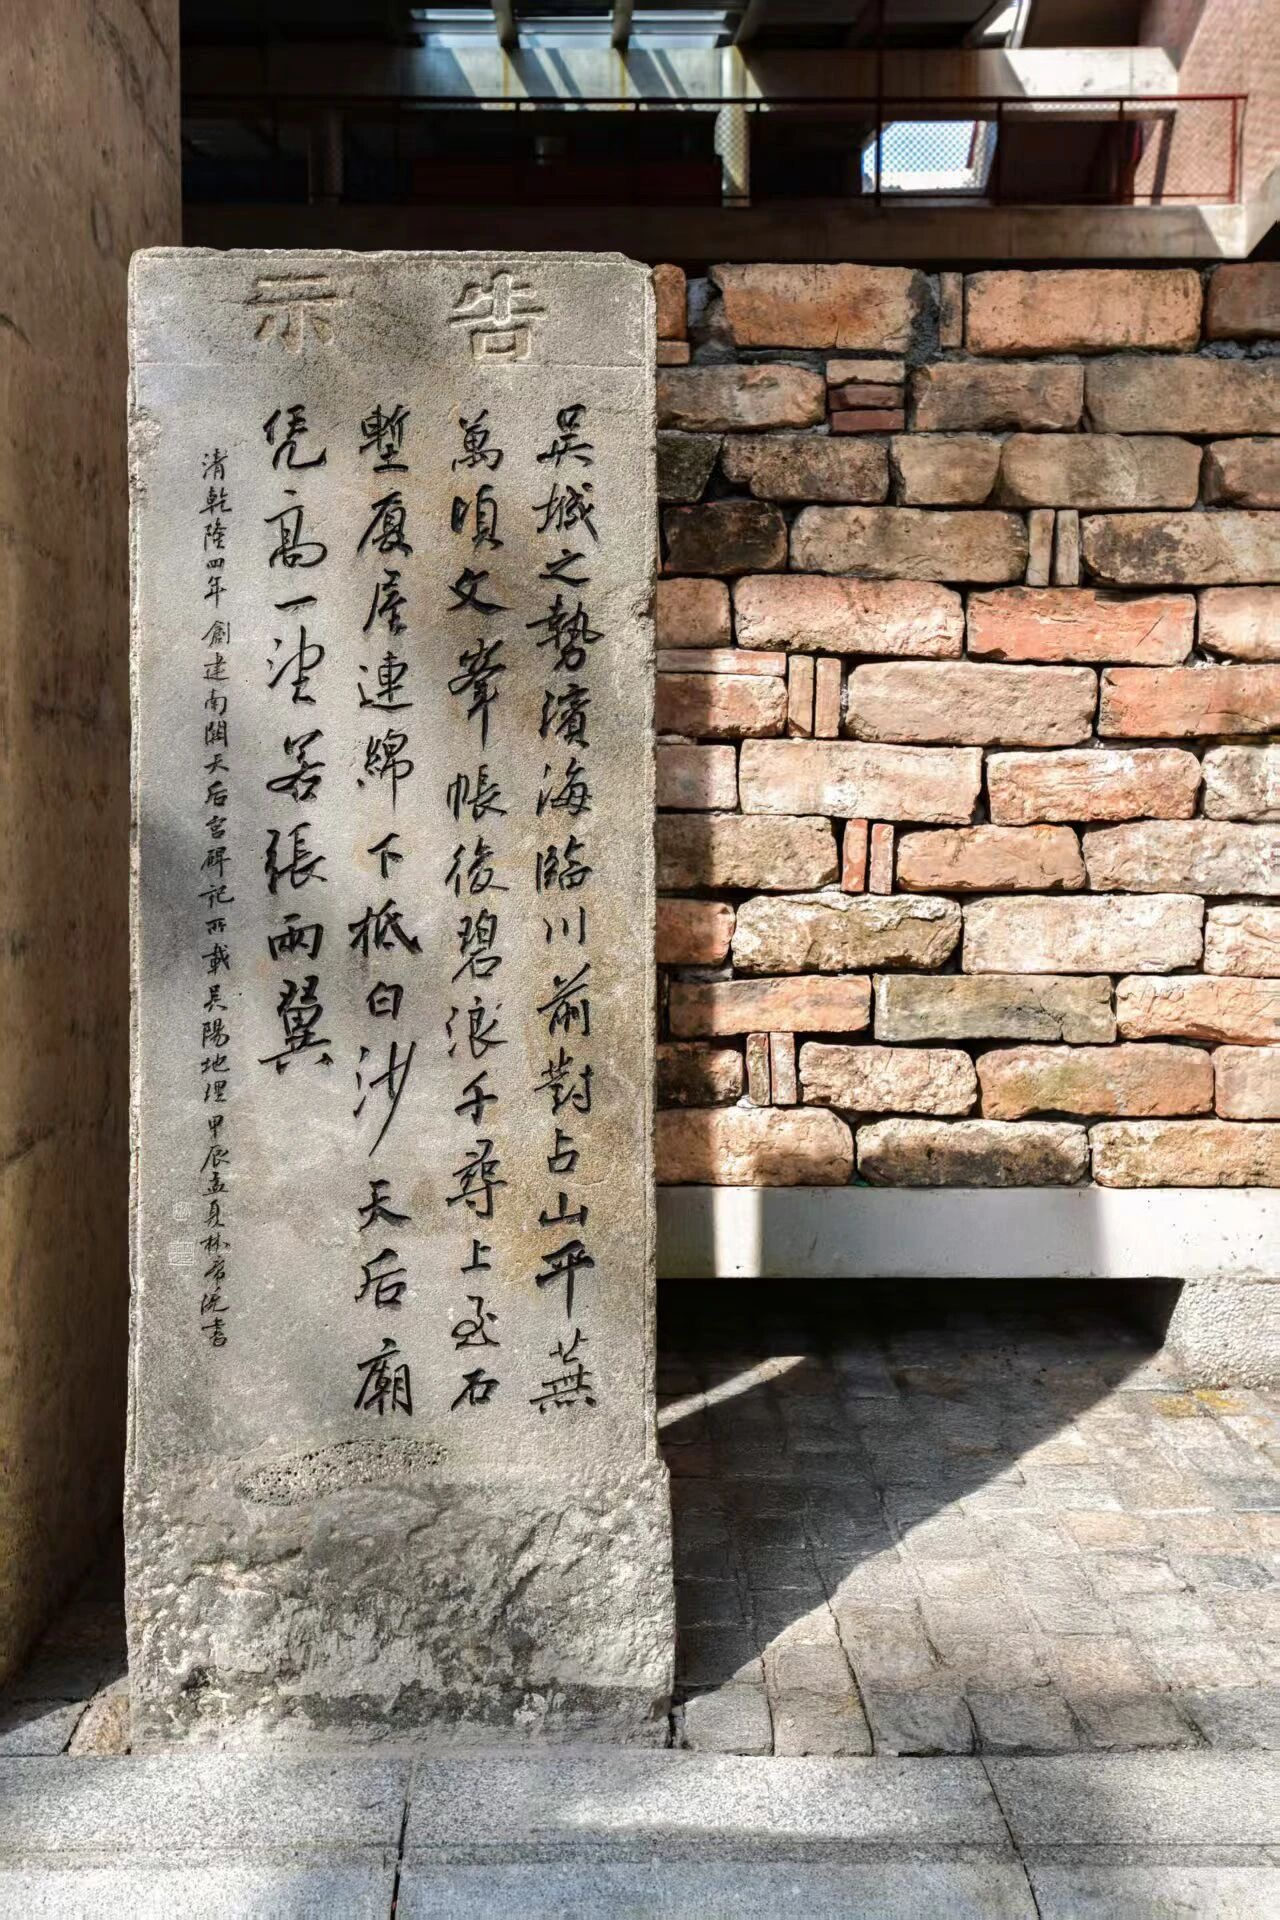 告示
吳城之勢濱海臨川前對占山平蕪
萬頃文峯帳後碧浪千尋上至石
塹廈屋連綿下抵白沙天后廟
凭高一望若張兩翼
清乾隆四年創建南關天后宮碑記所載吳陽地理甲辰孟夏林